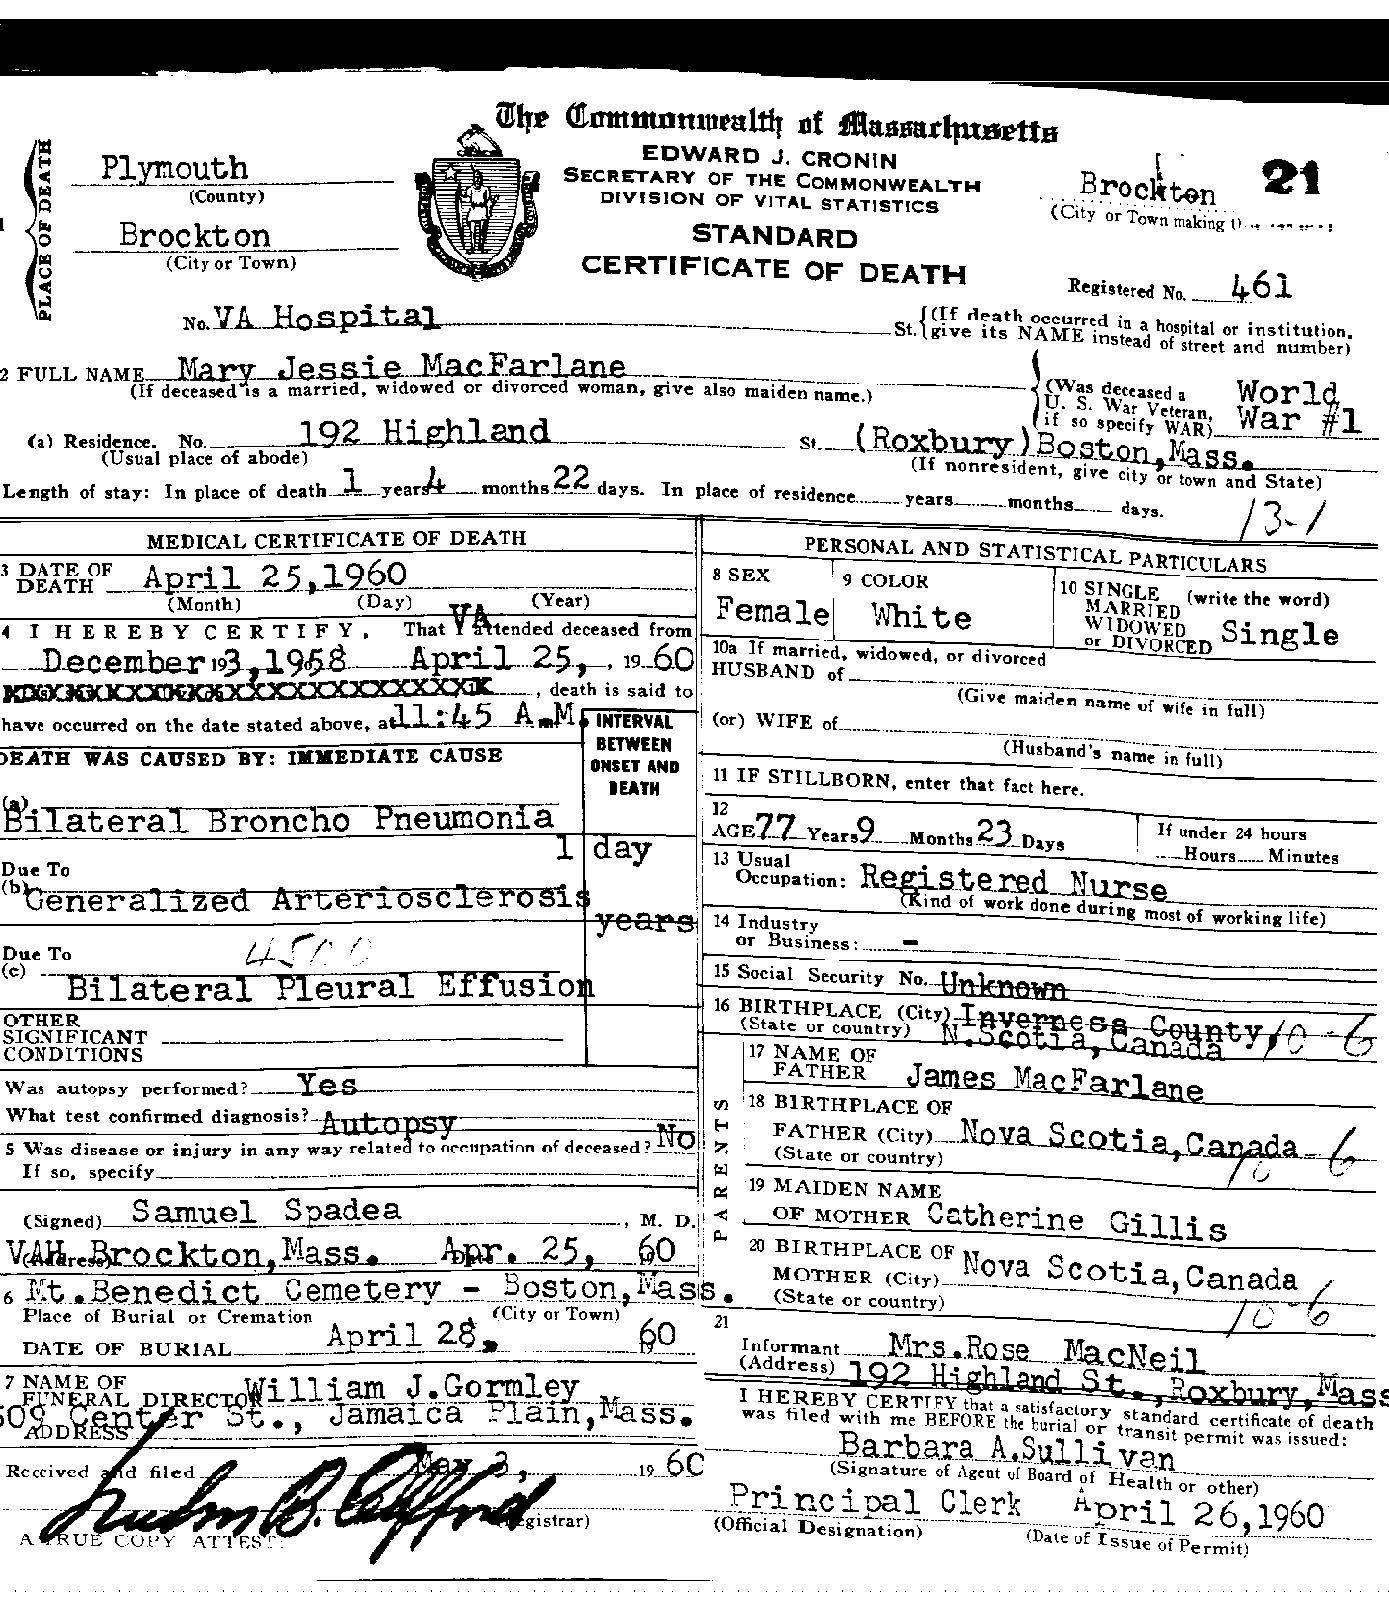 The Commonwealth of Massachusetts
EDWARD J. CRONIN
SECRETARY OF THE COMMONWEALTH
DIVISION OF VITAL STATISTICS
STANDARD
CERTIFICATE OF DEATH
PLACE OF DEATH
Plymouth
(County)
Brockton
(City or Town)
Brockton 21
(City or Town making
Registered No. 461
No. VA Hospital St. {(If death occurred in a hospital or institution, give its NAME instead of street and number)
2 FULL NAME Mary Jessie MacFarlane
(If deceased is a married, widowed or divorced woman, give also maiden name.)
(Was deceased a U. S. War Veteran, if so specify WAR) World War #1
(a) Residence. No. 192 Highland St. (Roxbury)Boston,Mass.
(Usual place of abode) (If nonresident, give city or town and State)
Length of stay: In place of death 1 years 4 months 22 days. In place of residence years months days.
13-1
MEDICAL CERTIFICATE OF DEATH
3 DATE OF DEATH April 25,1960
(Month) (Day) (Year)
4 I HEREBY CERTIFY, That VA I attended deceased from
December 3,1958 April 25, , 19 60
, death is said to
have occurred on the date stated above, at 11:45 A.M.
INTERVAL BETWEEN ONSET AND DEATH
DEATH WAS CAUSED BY: IMMEDIATE CAUSE
(a) Bilateral Broncho Pneumonia
1 day
Due To
(b) Generalized Arteriosclerosis
years
Due To
(c) Bilateral Pleural Effusion
OTHER
SIGNIFICANT
CONDITIONS
Was autopsy performed? Yes
What test confirmed diagnosis? Autopsy
5 Was disease or injury in any way related to occupation of deceased? No
If so, specify
(Signed) Samuel Spadea , M. D.
(Address) VAH Brockton,Mass. Apr. 25, 60
6 Mt.Benedict Cemetery - Boston,Mass.
Place of Burial or Cremation (City or Town)
DATE OF BURIAL April 28, 60
7 NAME OF FUNERAL DIRECTOR William J.Gormley
ADDRESS 509 Center St., Jamaica Plain,Mass.
Received and filed May 3, 19 60
(Registrar)
A TRUE COPY ATTEST:
PERSONAL AND STATISTICAL PARTICULARS
8 SEX Female
9 COLOR White
10 SINGLE MARRIED WIDOWED or DIVORCED (write the word) Single
10a If married, widowed, or divorced
HUSBAND of
(Give maiden name of wife in full)
(or) WIFE of
(Husband's name in full)
11 IF STILLBORN, enter that fact here.
12 AGE 77 Years 9 Months 23 Days
If under 24 hours
Hours Minutes
13 Usual Occupation: Registered Nurse
(Kind of work done during most of working life)
14 Industry or Business: -
15 Social Security No. Unknown
16 BIRTHPLACE (City) Inverness County,
(State or country) N.Scotia,Canada 10-6
PARENTS
17 NAME OF FATHER James MacFarlane
18 BIRTHPLACE OF FATHER (City) Nova Scotia,Canada
(State or country) 10-6
19 MAIDEN NAME OF MOTHER Catherine Gillis
20 BIRTHPLACE OF MOTHER (City) Nova Scotia,Canada
(State or country) 10-6
21
Informant Mrs.Rose MacNeil
(Address) 192 Highland St.,Roxbury,Mass
I HEREBY CERTIFY that a satisfactory standard certificate of death
was filed with me BEFORE the burial or transit permit was issued:
Barbara A.Sullivan
(Signature of Agent of Board of Health or other)
Principal Clerk April 26,1960
(Official Designation) (Date of Issue of Permit)